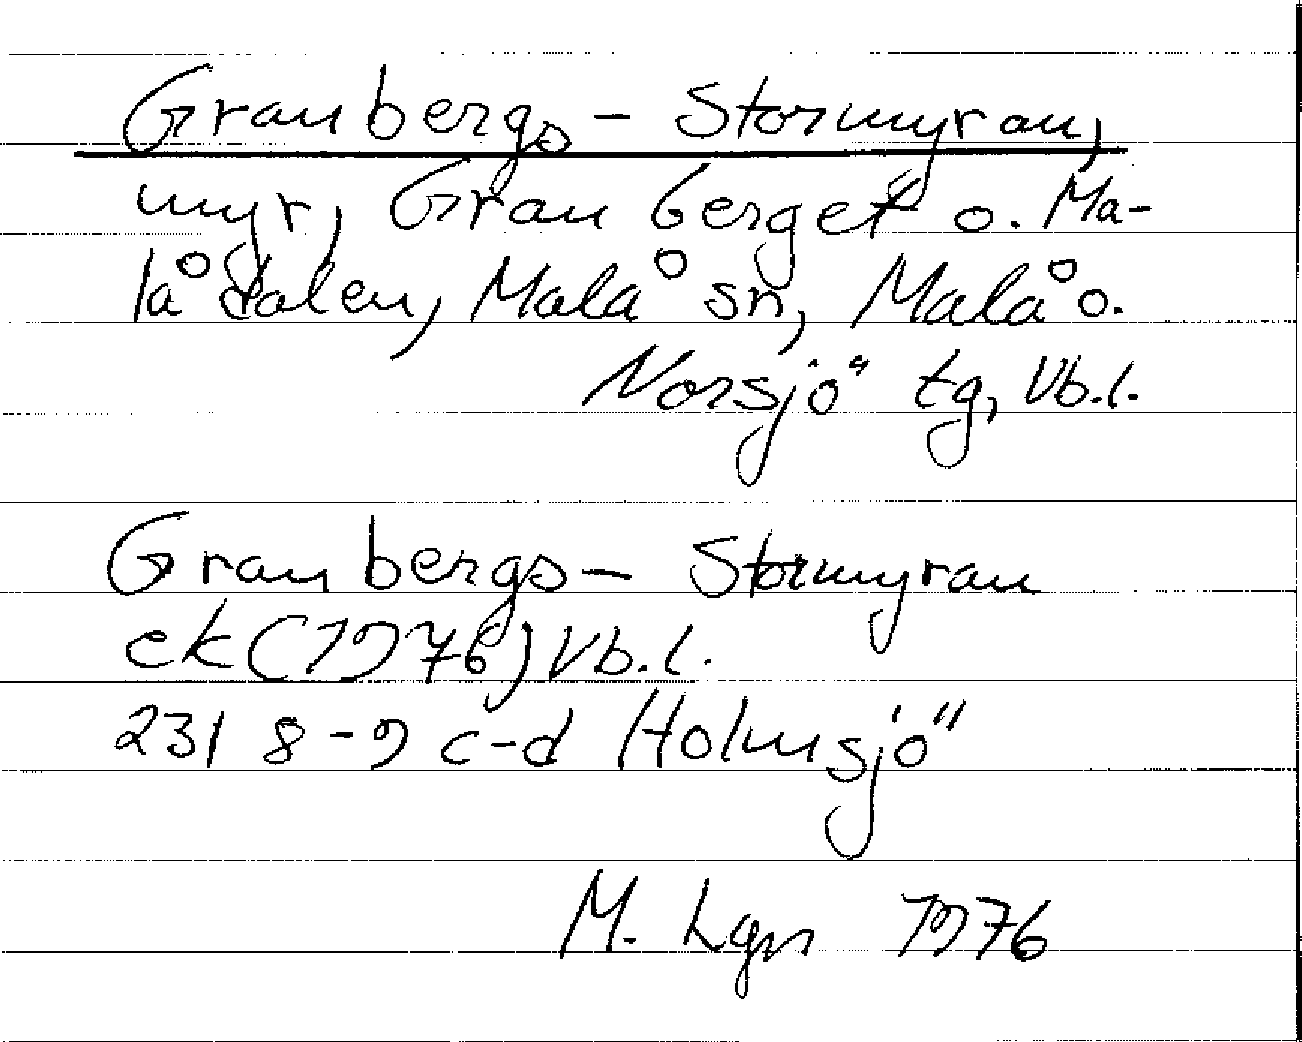 Granbergs-Stormyran,
myr, Granberget o. Ma-
lådalen, Malå sn, Malå o.
Norsjö tg, Vb.l.
Granbergs-Stormyran
ek (1976) Vb.l.
23I 8-9 c-d Holmsjö
M. Lgn 1976